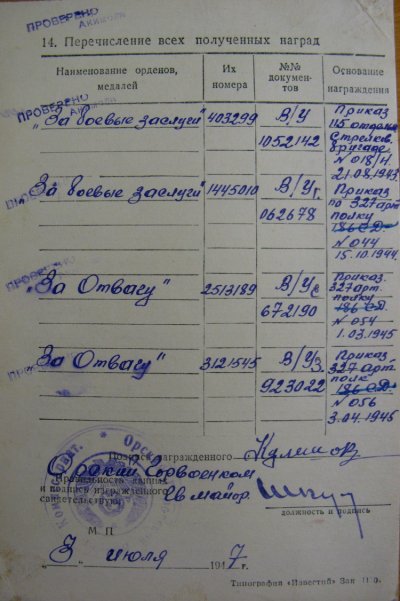 ПРОВЕРЕНО
14. Перечисление всех полученных наград
Наименование орденов, медалей
Их номера
№№ документов
Основание награждения
ПРОВЕРЕНО
„За боевые заслуги" 403299 В/У Приказ
115 отдельн.
Стрелков.
1052142 бригаде
N 018/н.
21.08.1943
„За боевые заслуги" 1445010 В/Уг. Приказ
по 327 арт
062678 полку
186 СД.
N 044
15.10.1944.
ПРОВЕРЕНО
„За Отвагу" 2513189 В/Уе Приказ.
327 арт.
полку
672190 186 СД.
N 054
1.03.1945
„За Отвагу" 3121545 В/Уз Приказ.
327 Арт.
полк
923022 186 СД.
N 056
3.04.1945
Подпись награжденного
Орский Горвоенком
Правильность данных
и подпись награжденного
свидетельствую:
Гв майор.
должность и подпись
М. П
„3" июля 1947 г.
Типография «Известий» Зак